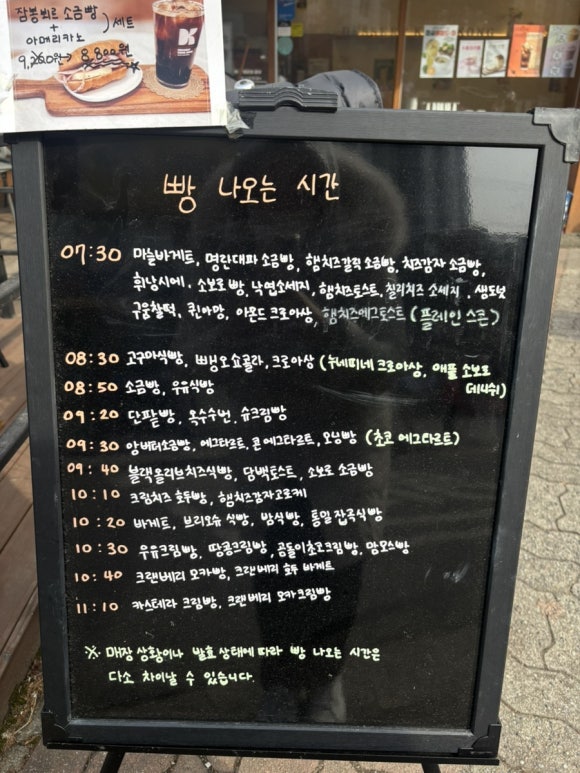 잠봉뵈르 소금빵
+
아메리카노 ) 세트
9,700원 → 8,800원
빵 나오는 시간
07:30 마늘바게트, 명란대파 소금빵, 햄치즈갈릭 소금빵, 치즈감자 소금빵,
휘낭시에, 소보로빵, 낙엽소세지, 햄치즈토스트, 칠리치즈 소세지, 생도넛
구움찰떡, 퀸아망, 아몬드 크로아상, 햄치즈에그토스트 (플레인 스콘)
08:30 고구마식빵, 뺑오쇼콜라, 크로아상 (누네띠네 크로아상, 애플 소보로
데니쉬)
08:50 소금빵, 우유식빵
09:20 단팥빵, 옥수수번, 슈크림빵
09:30 앙버터소금빵, 에그타르트, 콘에그타르트, 오닝빵 (초코 에그타르트)
09:40 블랙올리브치즈식빵, 담백토스트, 소보로 소금빵
10:10 크림치즈 호두빵, 햄치즈감자고로케
10:20 바게트, 브리오슈 식빵, 밤식빵, 통밀 잡곡식빵
10:30 우유크림빵, 땅콩크림빵, 곰돌이초코크림빵, 맘모스빵
10:40 크랜베리 모카빵, 크랜베리 호두 바게트
11:10 카스테라 크림빵, 크랜베리 모카크림빵
※ 매장 상황이나 발효 상태에 따라 빵 나오는 시간은
다소 차이날 수 있습니다.